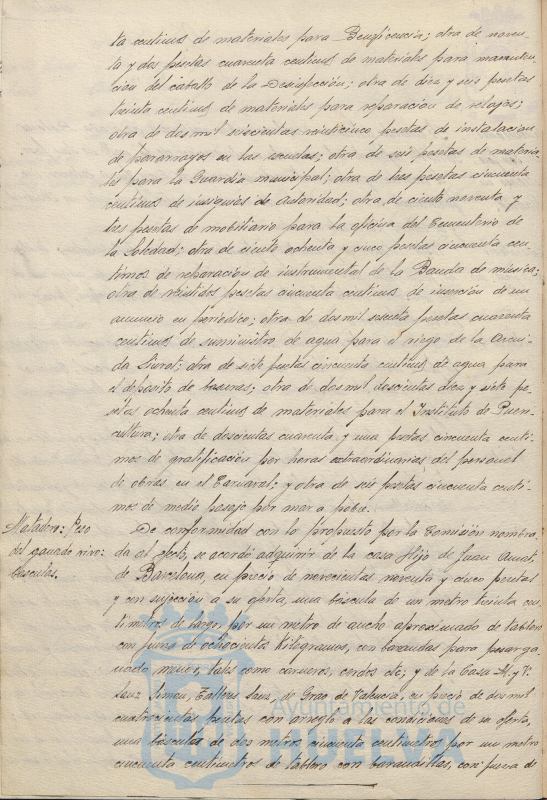 ta centimos de materiales para Beneficencia; otra de noven-
ta y dos pesetas cuarenta centimos de materiales para manuten-
ción del caballo de la Desinfección; otra de diez y seis pesetas
treinta centimos de materiales para reparación de relojes;
otra de dos mil seiscientas veinticinco pesetas de instalación
de pararrayos en las escuelas; otra de seis pesetas de materia-
les para la Guardia municipal; otra de tres pesetas cincuenta
centimos de insignias de autoridad; otra de ciento noventa y
tres pesetas de mobiliario para la oficina del Cementerio de
la Soledad; otra de ciento ochenta y cinco pesetas cincuenta cen-
timos de reparación de instrumental de la Banda de música;
otra de veintidos pesetas cincuenta centimos de inserción de un
anuncio en periodico; otra de dos mil sesenta pesetas cuarenta
centimos de suministro de agua para el riego de la Aveni-
da Siurot; otra de siete pesetas cincuenta centimos de agua para
el deposito de basuras; otra de dos mil doscientas diez y siete pe-
setas ochenta centimos de materiales para el Instituto de Pueri-
cultura; otra de doscientas cuarenta y una pesetas cincuenta centi-
mos de gratificación por horas extraordinarias del personal
de obras en el Carnaval; y otra de seis pesetas cincuenta centi-
mos de medio pasaje por mar a pobre.
Matadero: Peso
del ganado vivo:
básculas.
De conformidad con lo propuesto por la Comisión nombra-
da al efecto, se acordó adquirir de la casa Hijo de Juan
de Barcelona, en precio de novecientas noventa y cinco pesetas
y con sujeción a su oferta, una báscula de un metro treinta cen-
timetros de largo, por un metro de ancho aproximado de tablero
con fuerza de ochocientos kilogramos, con barandas para pesar ga-
nado menor, tales como carneros, cerdos etc; y de la Casa M. y V.
Sanz Simeu, Talleres Sanz, de Grao de Valencia, en precio de dos mil
cuatrocientas pesetas con arreglo a las condiciones de su oferta,
una báscula de dos metros cincuenta centimetros por un metro
cincuenta centimetros de tablero con barandillas, con fuerza de
Ayuntamiento de
HUELVA